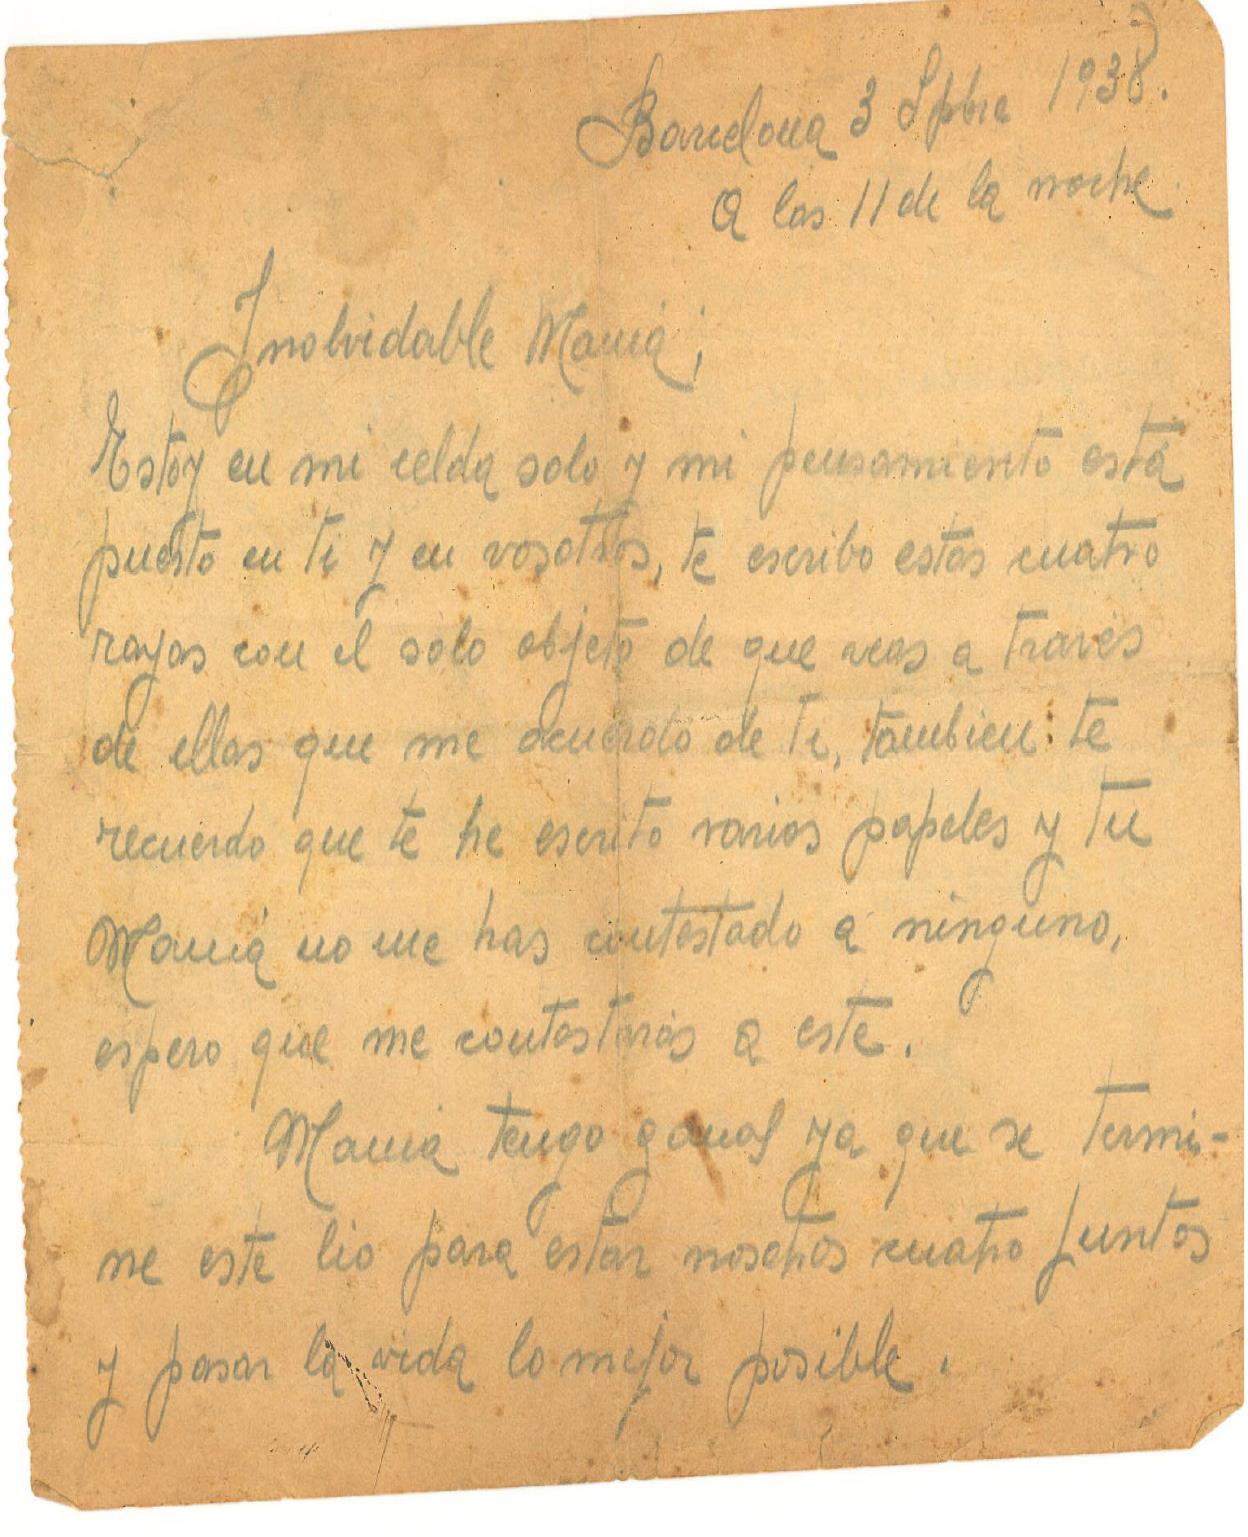 Barcelona 3 Spbre 1938.
a las 11 de la noche.
Inolvidable Mamá;
Estoy en mi celda solo y mi pensamiento está
puesto en ti y en vosotros, te escribo estas cuatro
rayas con el solo objeto de que veas a través
de ellas que me acuerdo de ti, tambien te
recuerdo que te he escrito varios papeles y tu
Mamá no me has contestado a ninguno,
espero que me contestarás a este.
Mamá tengo ganas ya que se termi-
ne este lio para estar nosotros cuatro juntos
y pasar la vida lo mejor posible.